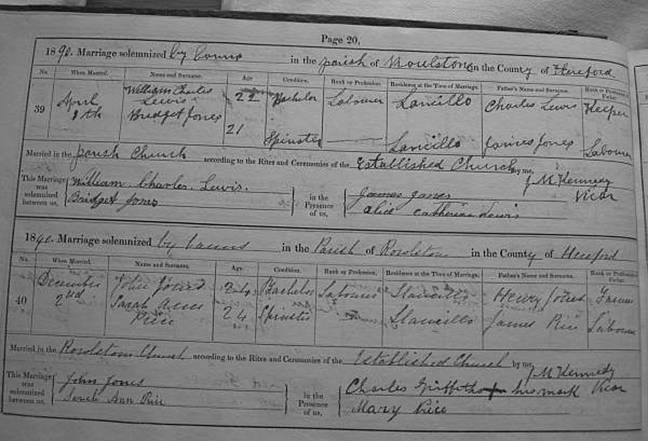 Page 20,
1890. Marriage solemnized by banns in the parish of Rowlstone in the County of Hereford
No. When Married. Name and Surname. Age Condition. Rank or Profession. Residence at the Time of Marriage. Father's Name and Surname. Rank or Profession of Father.
39 April 9th William Charles Lewis 22 Bachelor Labourer Lancillo Charles Lewis Keeper
Bridget Jones 21 Spinster Lancillo James Jones Labourer
Married in the parish Church according to the Rites and Ceremonies of the Established Church by me, J McKennedy Vicar
This Marriage was solemnized between us, William Charles Lewis. Bridget Jones in the Presence of us, James Jones Alice Catherine Lewis
1890. Marriage solemnized by banns in the Parish of Rowlston in the County of Hereford
No. When Married. Name and Surname. Age. Condition. Rank or Profession. Residence at the Time of Marriage. Father's Name and Surname. Rank or Profession of Father.
40 December 2nd John Jones 24 Bachelor Labourer Llancillo Henry Jones Farmer
Sarah Price 24 Spinster Llancillo James Price Labourer
Married in the Rowlstone Church according to the Rites and Ceremonies of the Established Church by me, J McKennedy Vicar
This Marriage was solemnized between us, John Jones Sarah Ann Price in the Presence of us, Charles Griffiths his mark Mary Price